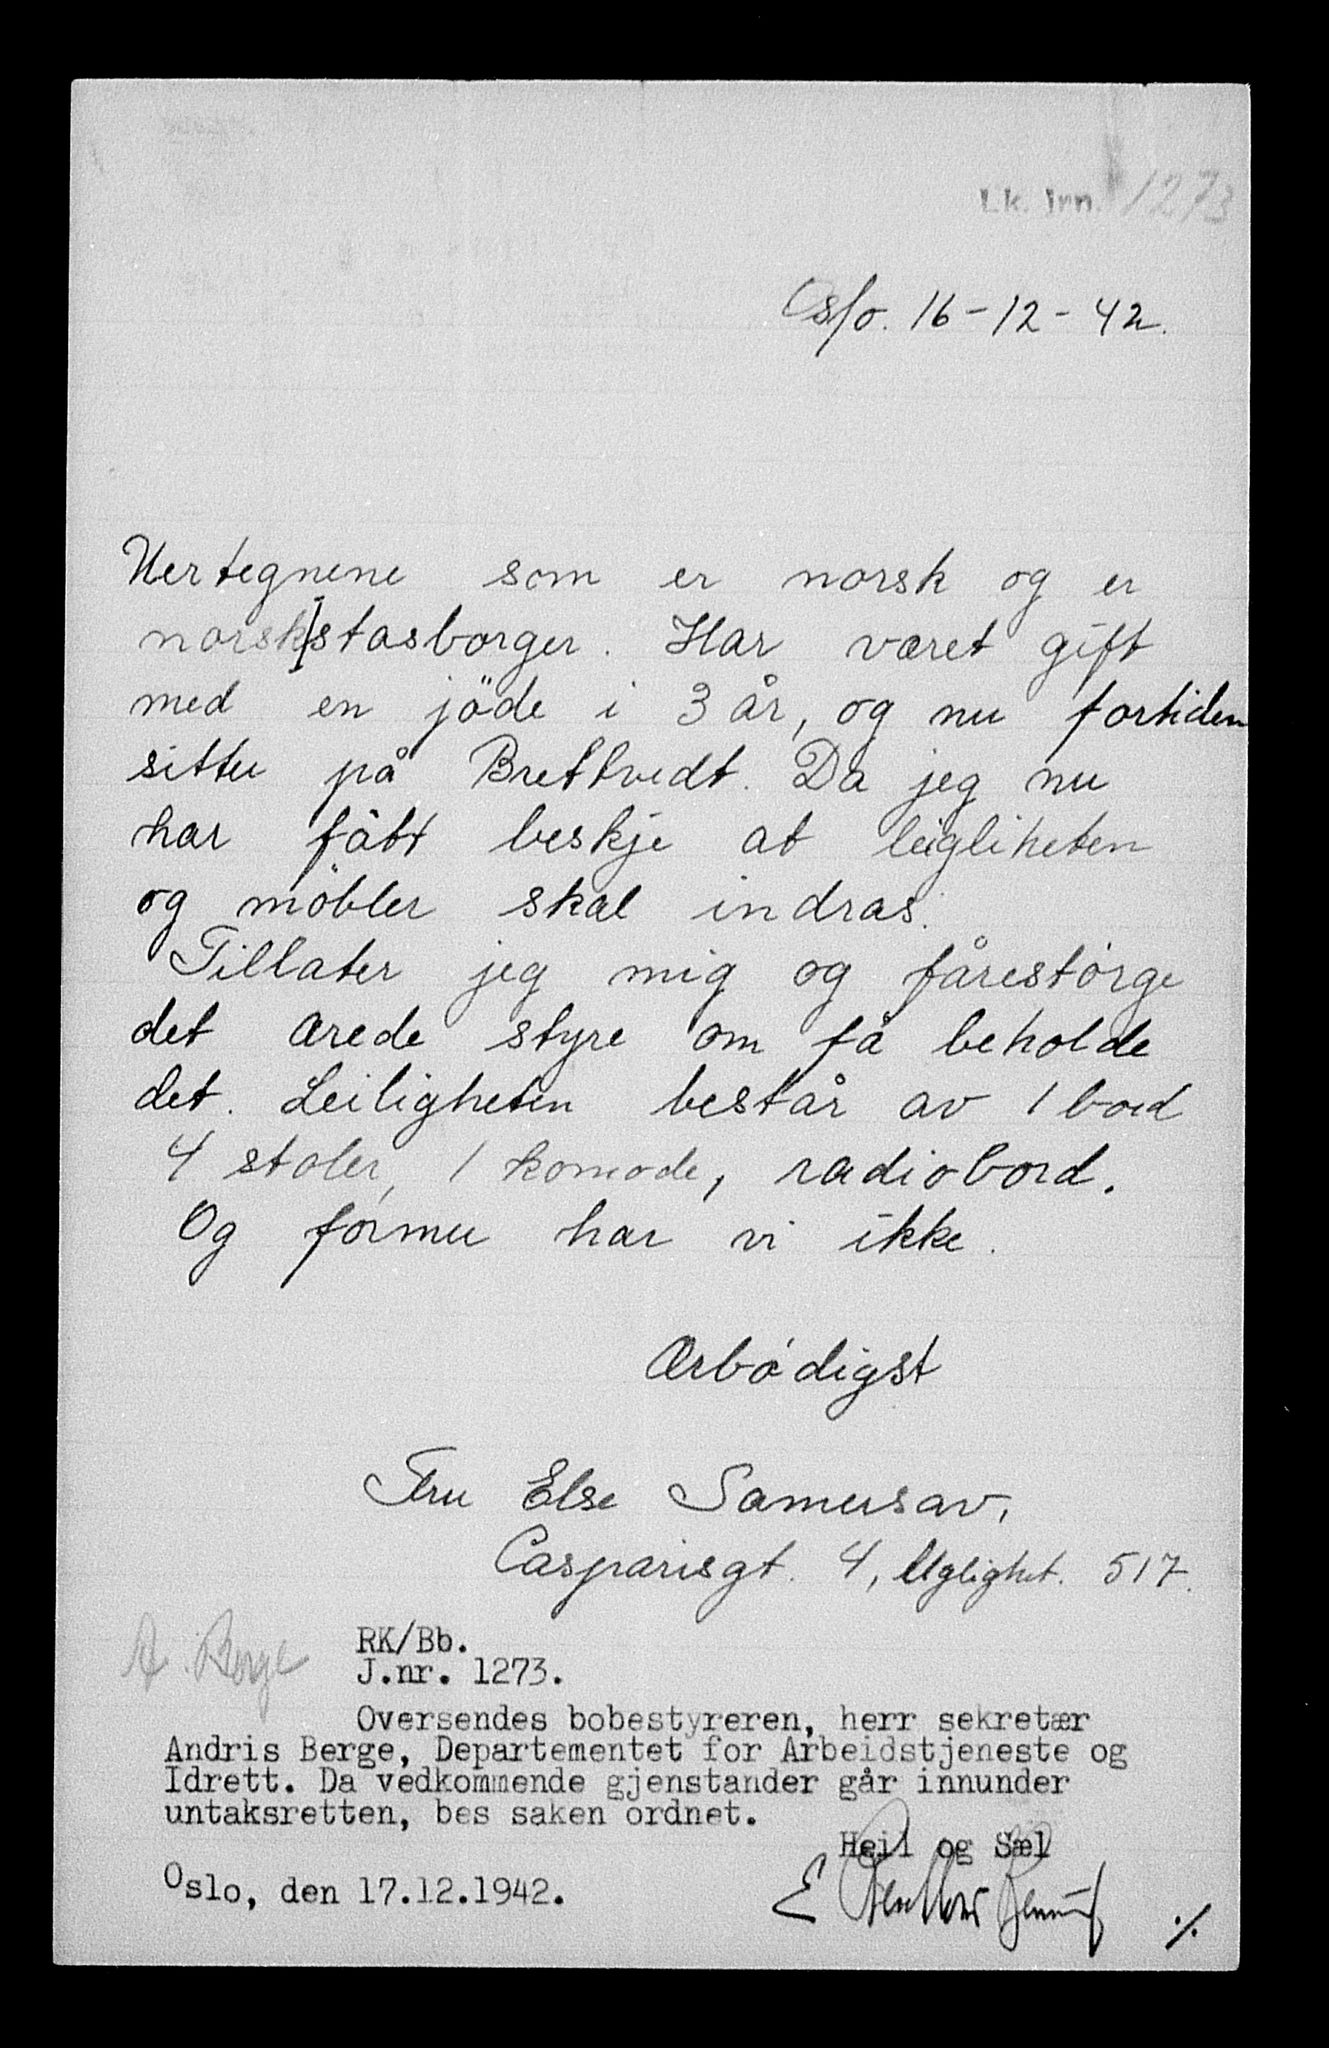 Lk. Jrn. 1273
Oslo. 16-12-42.
Uertegnene som er norsk og er
norsk stasborger. Har været gift
med en jöde i 3 år, og nu fortiden
sitter på Brettvedt. Da jeg nu
har fått beskje at leigliheten
og möbler skal indras.
Tillater jeg mig og fårestörge
det ærede styre om få beholde
det. Leiligheten består av 1 bord
4 stoler, 1 komode, radiobord.
Og formue har vi ikke.
Ærbödigst
Fru Else
Casparisgt. 4, 517.
A. Berge
RK/Bb.
J.nr. 1273.
Oversendes bobestyreren, herr sekretær
Andris Berge, Departementet for Arbeidstjeneste og
Idrett. Da vedkommende gjenstander går innunder
untaksretten, bes saken ordnet.
Heil og Sæl
Oslo, den 17.12.1942.
E
./.